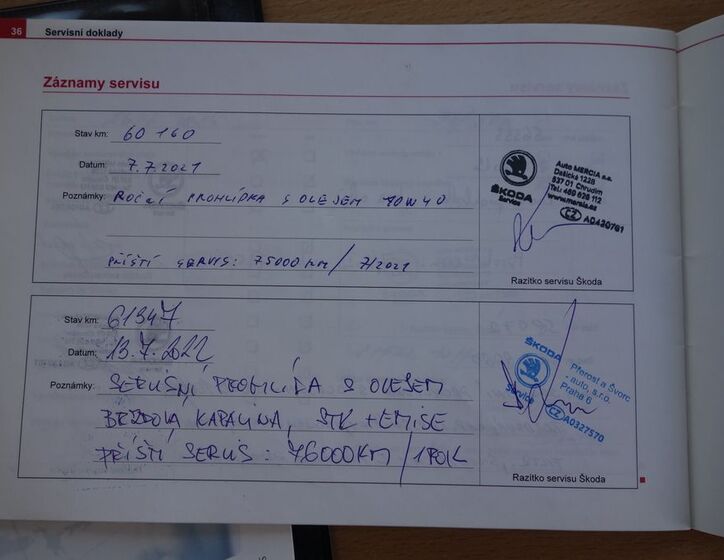 36 Servisní doklady
Záznamy servisu
Stav km: 60 160
Datum: 7.7.2021
Poznámky: ROČNÍ PROHLÍDKA S OLEJEM 10W40
PŘÍŠTÍ SERVIS: 75000 KM / 7/2021
ŠKODA
Service
Auto MERCIA a.s.
Dašická 1228
537 01 Chrudim
Tel.: 469 626 112
www.mercia.cz
CZ A0430761
Razítko servisu Škoda
Stav km: 61347
Datum: 13.7.2022
Poznámky: SERVISNÍ PROHLÍDKA S OLEJEM
BRZDOVÁ KAPALINA, STK + EMISE
PŘÍŠTÍ SERVIS: 76000KM / 1 ROK
ŠKODA
Service
Přerost a Švorc
- auto, s.r.o.
Praha 6
CZ A0327570
Razítko servisu Škoda